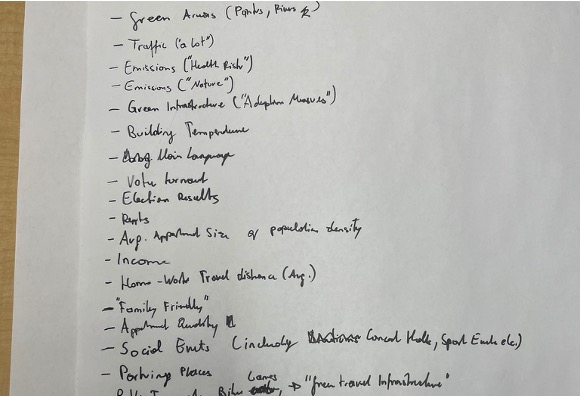 - Green Areas (Parks, Rivers
- Traffic ("a lot")
- Emissions ("Health Risk")
- Emissions ("Nature")
- Green Infrastructure ("Adaption Measures")
- Building Temperature
- Main Language
- Vote turnout
- Election Results
- Rents
- Avg. Appartment Size or population density
- Income
- Home-Work Travel distance (Avg.)
- "Family Friendly"
- Appartment Quality
- Social Events (including Concert Halls, Sport Events etc.)
- Parking Places
Bike Lanes, → "green travel Infrastructure"